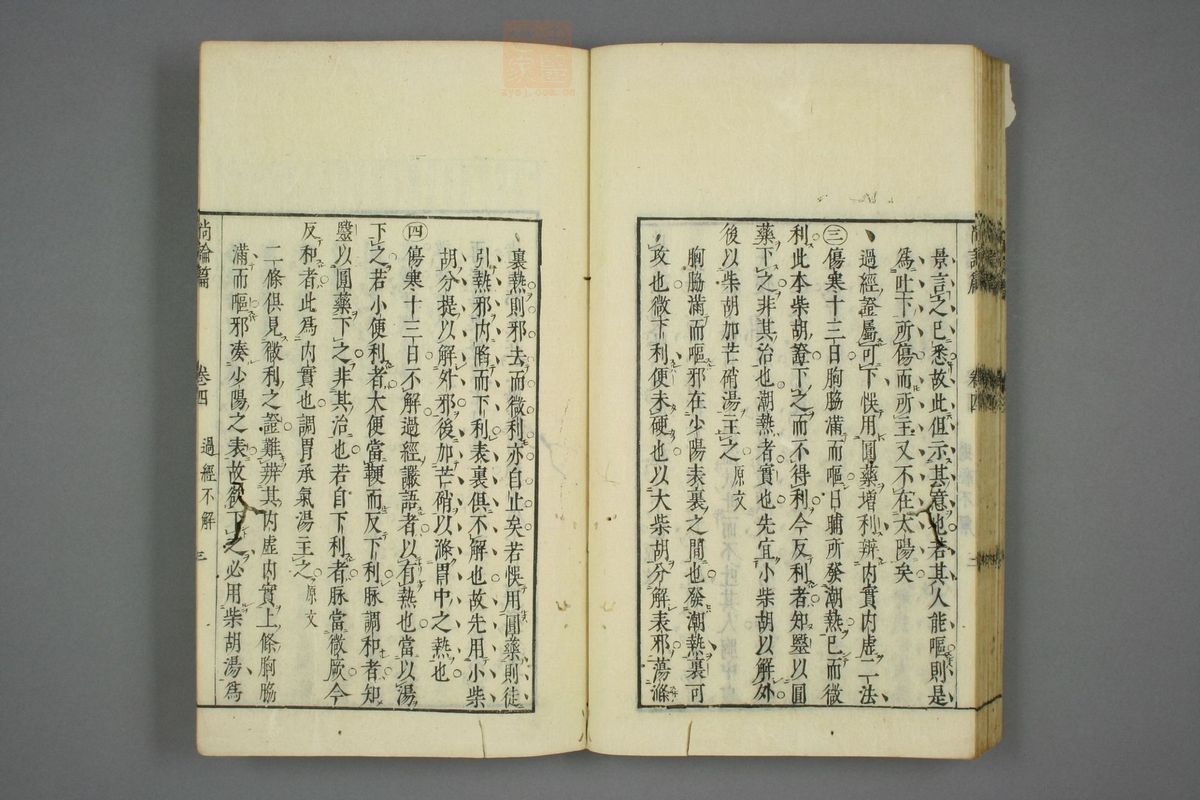 景言之已悉故此但示其意也若其人能嘔則是
爲吐下所傷而所主又不在太陽矣
過經證屬可下悞用圓藥增利辨內實內虛二法
㊂傷寒十三日胸脇滿而嘔日晡所發潮熱已而微
利此本柴胡證下之而不得利今反利者知毉以圓
藥下之非其治也潮熱者實也先宜小柴胡以解外
後以柴胡加芒硝湯主之原文
胸脇滿而嘔邪在少陽表裏之間也發潮熱裏可
攻也微下利便未硬也以大柴胡分解表邪蕩滌
裏熱則邪去而微利亦自止矣若悞用圓藥則徒
引熱邪內陷而下利表裏俱不解也故先用小柴
胡分提以解外邪後加芒硝以滌胃中之熱也
㊃傷寒十三日不解過經讝語者以有熱也當以湯
下之若小便利者大便當鞕而反下利脉調和者知
毉以圓藥下之非其治也若自下利者脉當微厥今
反和者此爲內實也調胃承氣湯主之原文
二條俱見微利之證難辨其內虛內實上條胸脇
滿而嘔邪湊少陽之表故欲下之必用柴胡湯爲
尚論篇 卷四 過經不解 三
zyoj.com.cn